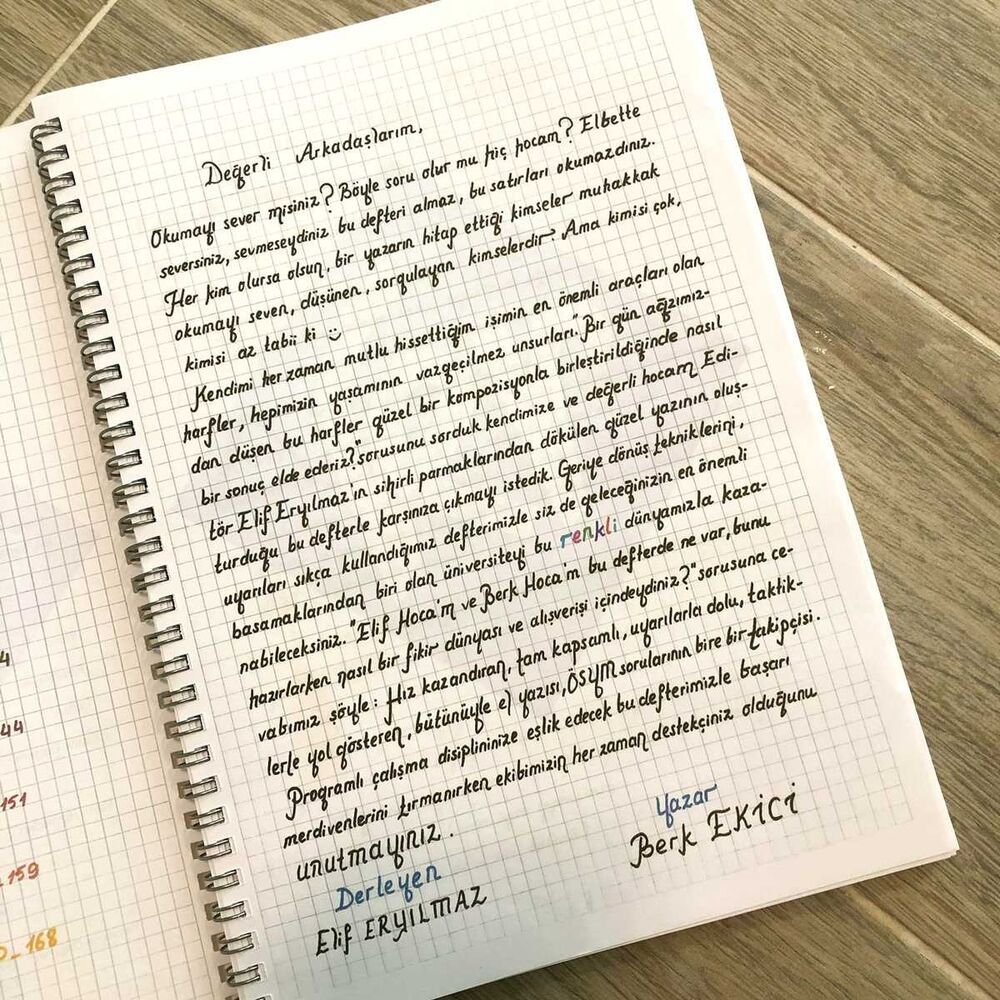 Değerli Arkadaşlarım,
Okumayı sever misiniz? Böyle soru olur mu hiç hocam? Elbette
seversiniz, sevmeseydiniz bu defteri almaz, bu satırları okumazdınız.
Her kim olursa olsun, bir yazarın hitap ettiği kimseler muhakkak
okumayı seven, düşünen, sorgulayan kimselerdir. Ama kimisi çok,
kimisi az tabii ki
Kendimi her zaman mutlu hissettiğim işimin en önemli araçları olan
harfler, hepimizin yaşamının vazgeçilmez unsurları. "Bir gün ağzımız-
dan düşen bu harfler güzel bir kompozisyonla birleştirildiğinde nasıl
bir sonuç elde ederiz?" sorusunu sorduk kendimize ve değerli hocam Edi-
tör Elif Eryılmaz'ın sihirli parmaklarından dökülen güzel yazının oluş-
turduğu bu defterle karşınıza çıkmayı istedik. Geriye dönüş tekniklerini,
uyarıları sıkça kullandığımız defterimizle siz de geleceğinizin en önemli
basamaklarından biri olan üniversiteyi bu renkli dünyamızla kaza-
nabileceksiniz. "Elif Hoca'm ve Berk Hoca'm bu defterde ne var, bunu
hazırlarken nasıl bir fikir dünyası ve alışverişi içindeydiniz?" sorusuna ce-
vabımız şöyle: Hız kazandıran, tam kapsamlı, uyarılarla dolu, taktik-
lerle yol gösteren, bütünüyle el yazısı, ÖSYM sorularının bire bir takipçisi.
Programlı çalışma disiplininize eşlik edecek bu defterimizle başarı
merdivenlerini tırmanırken ekibimizin her zaman destekçiniz olduğunu
unutmayınız.
Derleyen
Elif ERYILMAZ
Yazar
Berk EKİCİ
4
44
151
159
168